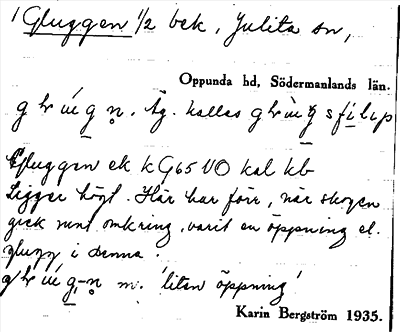 1 Gluggen 1/2 bek, Julita sn,
Oppunda hd, Södermanlands län.
kallas
Gluggen ek k G65 VO kal kb
Ligger högt. Här har förr, när skogen
gick runt omkring, varit en öppning el.
glugg i denna.
m. 'liten öppning'
Karin Bergström 1935.